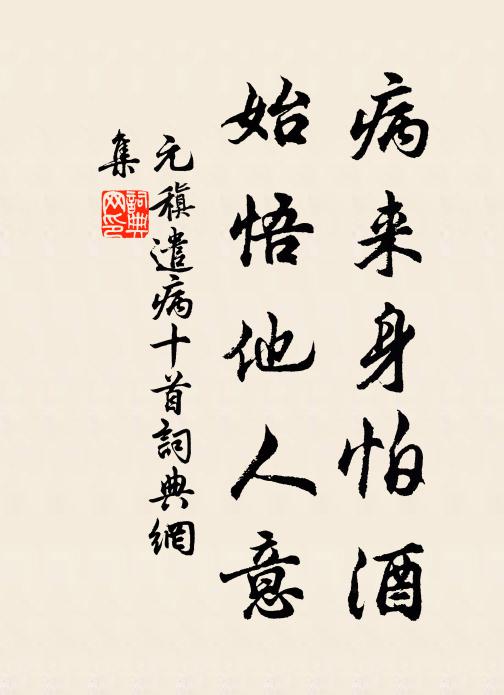 病来身怕酒
始悟他人意
元稹遣病十首詞典網
集
詞典
网印